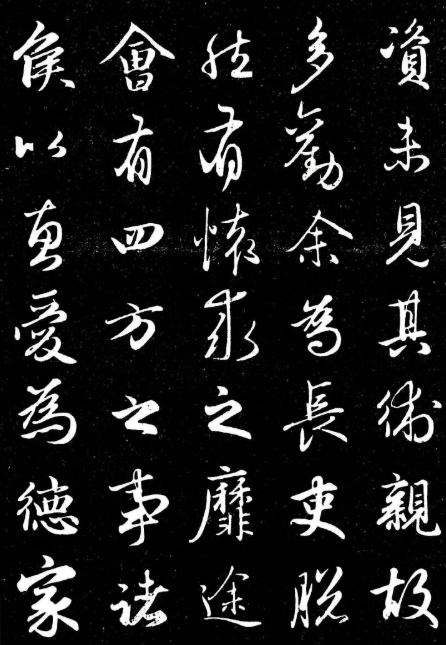 資未見其術親故
多勸余為長吏脫
然有懷求之靡途
會有四方之事諸
侯以惠愛為德家